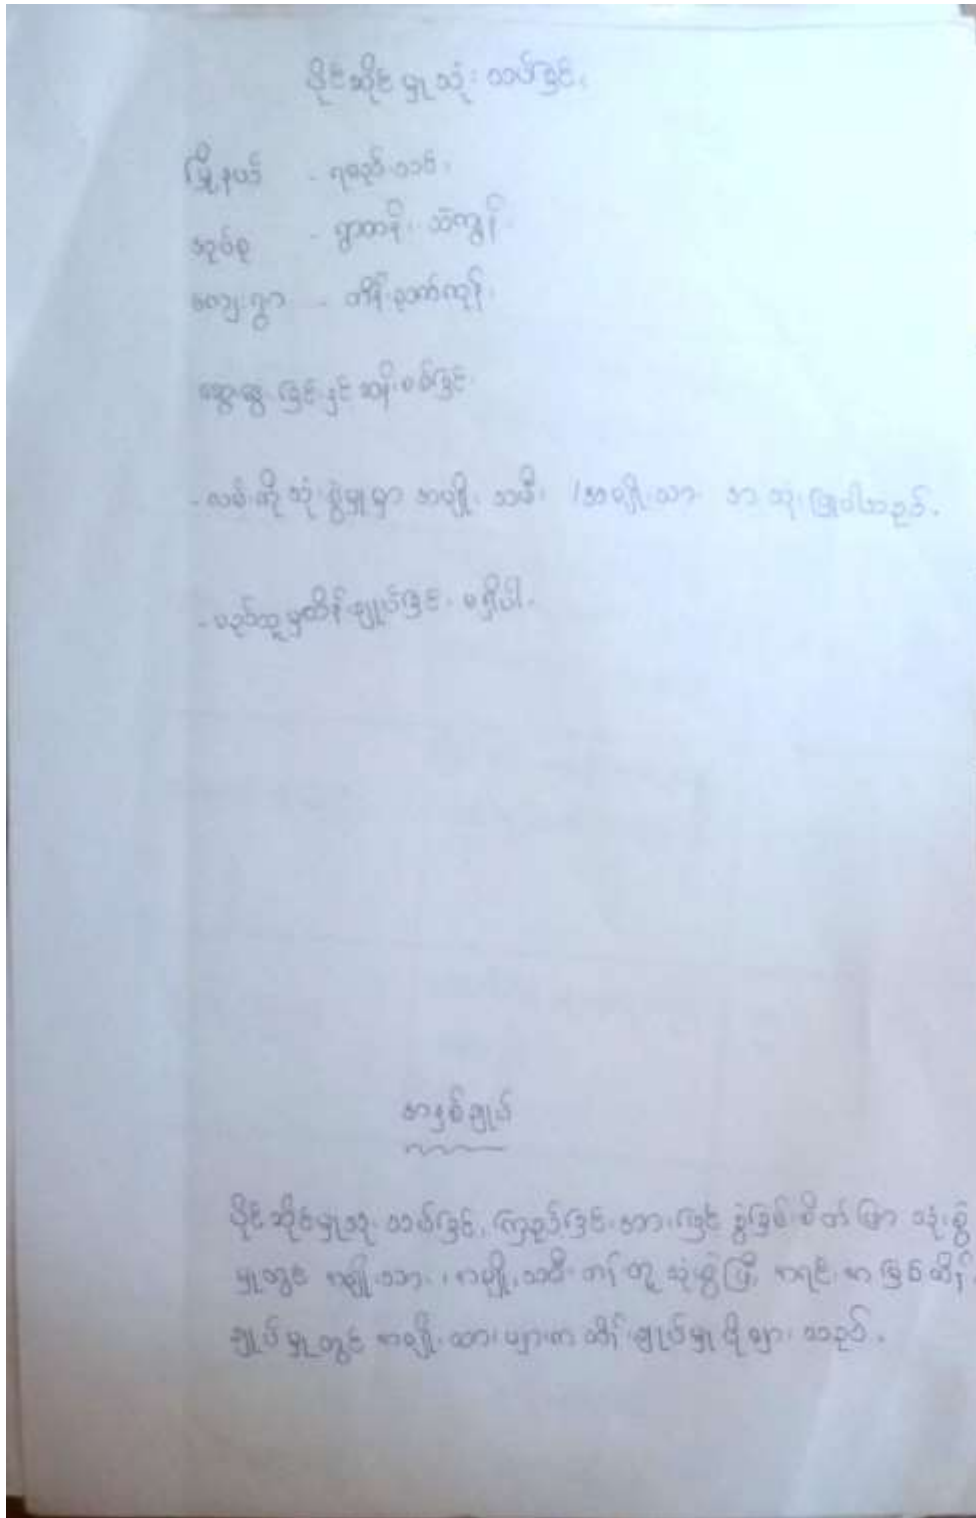 ပိုင်ဆိုင်မှုသုံးသပ်ခြင်း
မြို့နယ် - ရေစည်သာ၊
အုပ်စု - ရွာတန်း၊ သဲကျွန်း
ကျေးရွာ - တိန်ညက်ကုန်း
ဆွေးနွေးခြင်းနှင့်ဆန်းစစ်ခြင်း
- လမ်းကိုသုံးစွဲမှုမှာ အမျိုးသမီး / အမျိုးသား အသုံးပြုပါသည်။
- မည်သူမှထိန်းချုပ်ခြင်း မရှိပါ။
အနှစ်ချုပ်
ပိုင်ဆိုင်မှုသုံးသပ်ခြင်း, ကြည့်ခြင်းအားဖြင့် ခွဲခြမ်းစိတ်ဖြာ သုံးစွဲ
မှုတွင် အမျိုးသား၊ အမျိုးသမီး တန်းတူ သုံးစွဲပြီး အရင်းအမြစ်ထိန်း
ချုပ်မှုတွင် အမျိုးသားများက ထိန်းချုပ်မှုပိုများသည်။